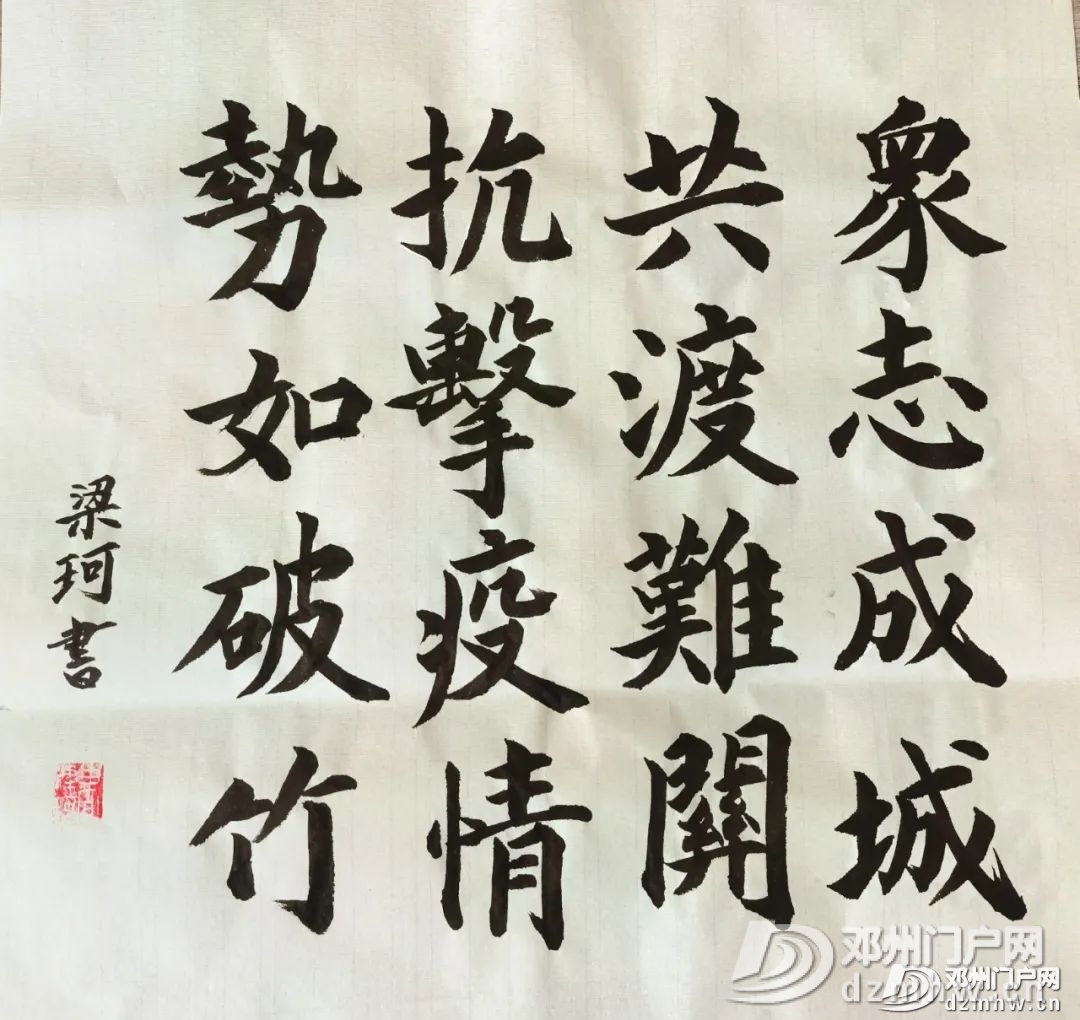 眾志成城
共渡難關
抗擊疫情
勢如破竹
梁珂書
邓州门户网
dzmhw.cn
邓州门户网
dzmhw.cn